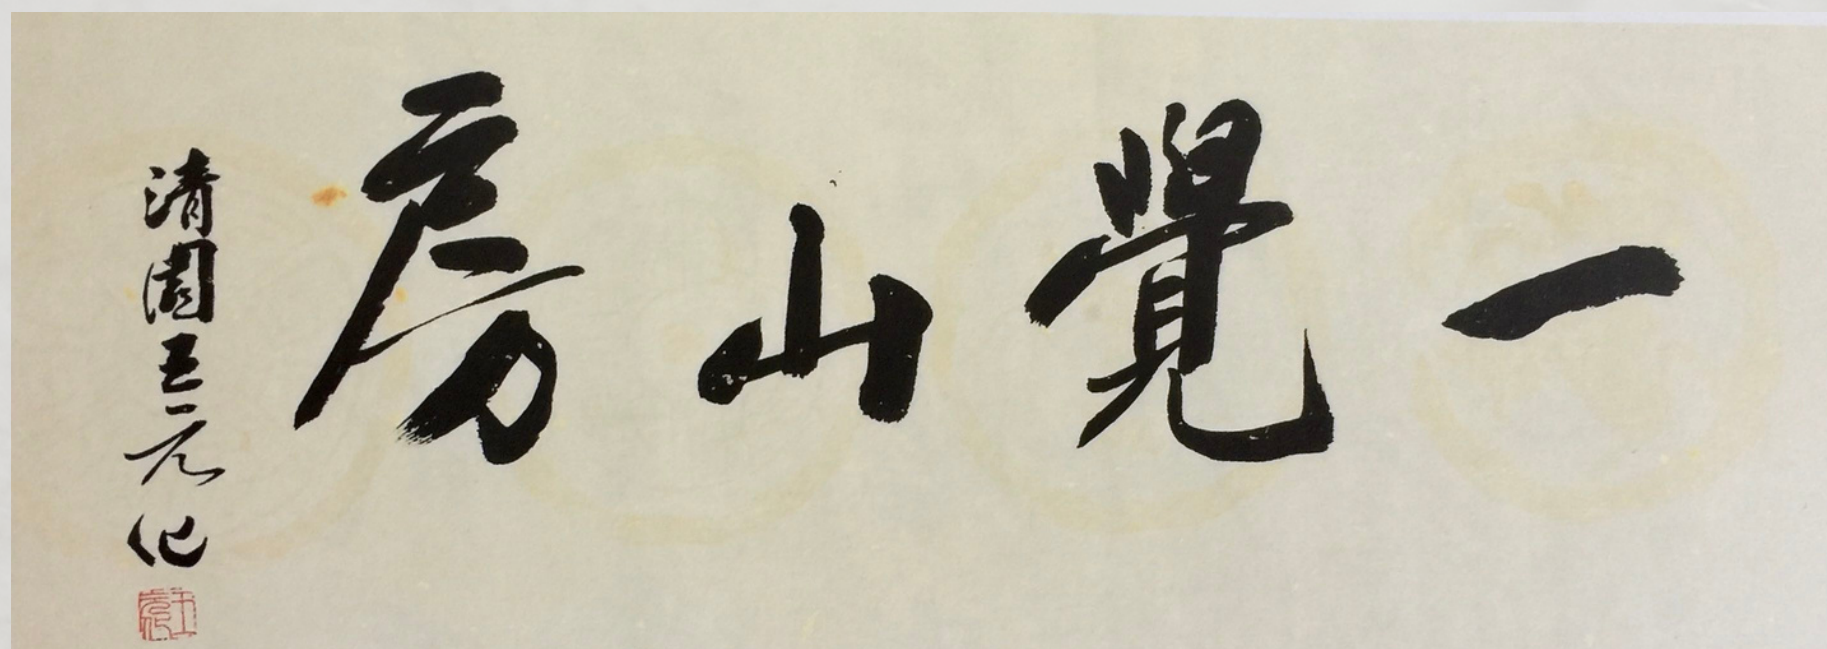 一覺山房
清園王元化